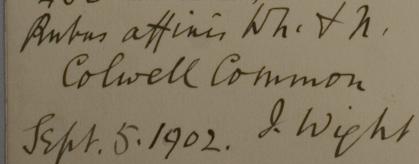 Rubus affinis Wh. & N.
Colwell Common
Sept. 5. 1902. I. Wight